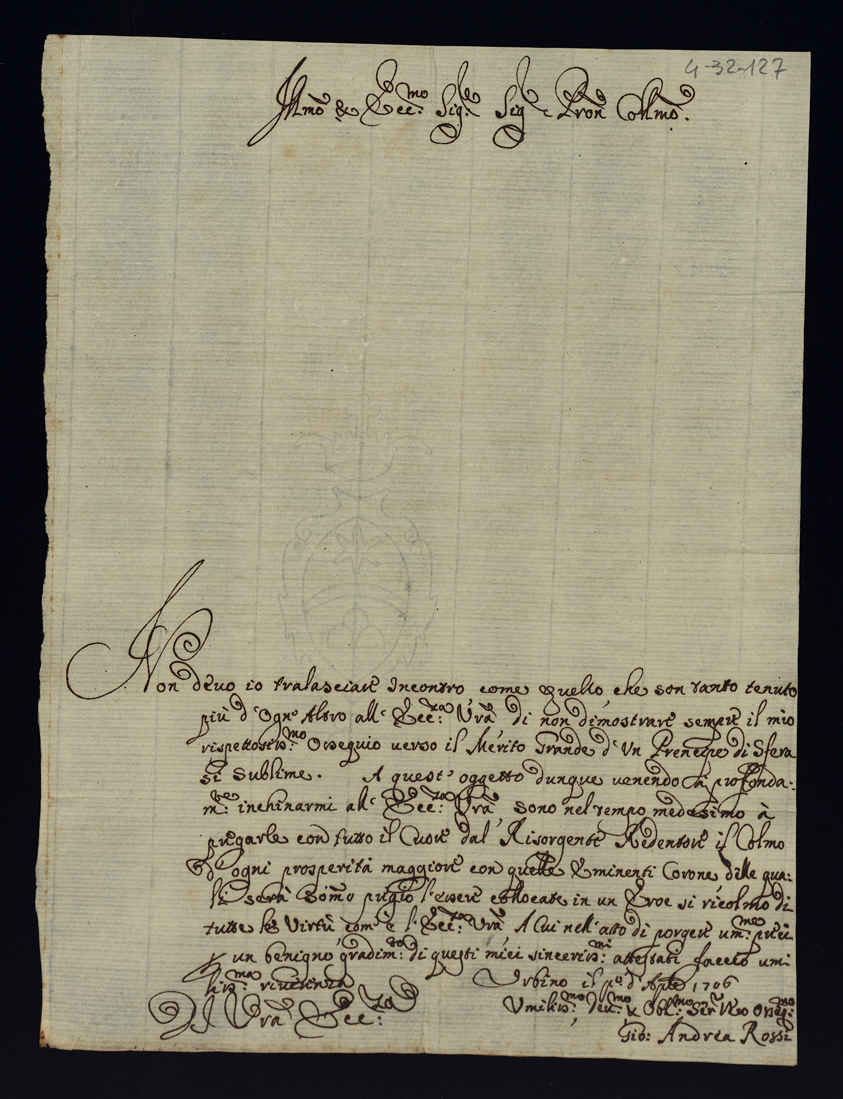 4-32-127
Jllmõ & Ecc:mo Sig:re Sig:re Pron Colmo.
Non devo io tralasciare Incontro come quello che son tanto tenuto
più d'Ogn'Altro all'Ecc:za Vrã di non dimostrare sempre il mio
rispettosiss:mo Ossequio verso il Mérito Grande d'Un Prencipe di Sfera
si Sublime. A quest'oggetto dunque venendo à profonda:
m:te inchinarmi all'Ecc:za Vrã sono nel tempo medesimo à
pregarle con tutto il Cuore dal Risorgente Redentore il Colmo
d'ogni prosperità maggiore con quelle Eminenti Corone delle qua:
li serà Sõmo pregio l'esser collocate in un Eroe si ricolmo di
tutte le Virtù com'è l'Ecc:za Vrã A Cui nell'atto di porger um:mes
un benigno gradim:to di questi miei sinceriss:mi attestati faccio umi
liss:ma riverenza Urbino il p:o d'Aple 1706
Di Vrã Ecc:za
Umiliss:mo Dev:mo & Obl:mo Ser:re Vero Osseq:mo
Gio: Andrea Rossi